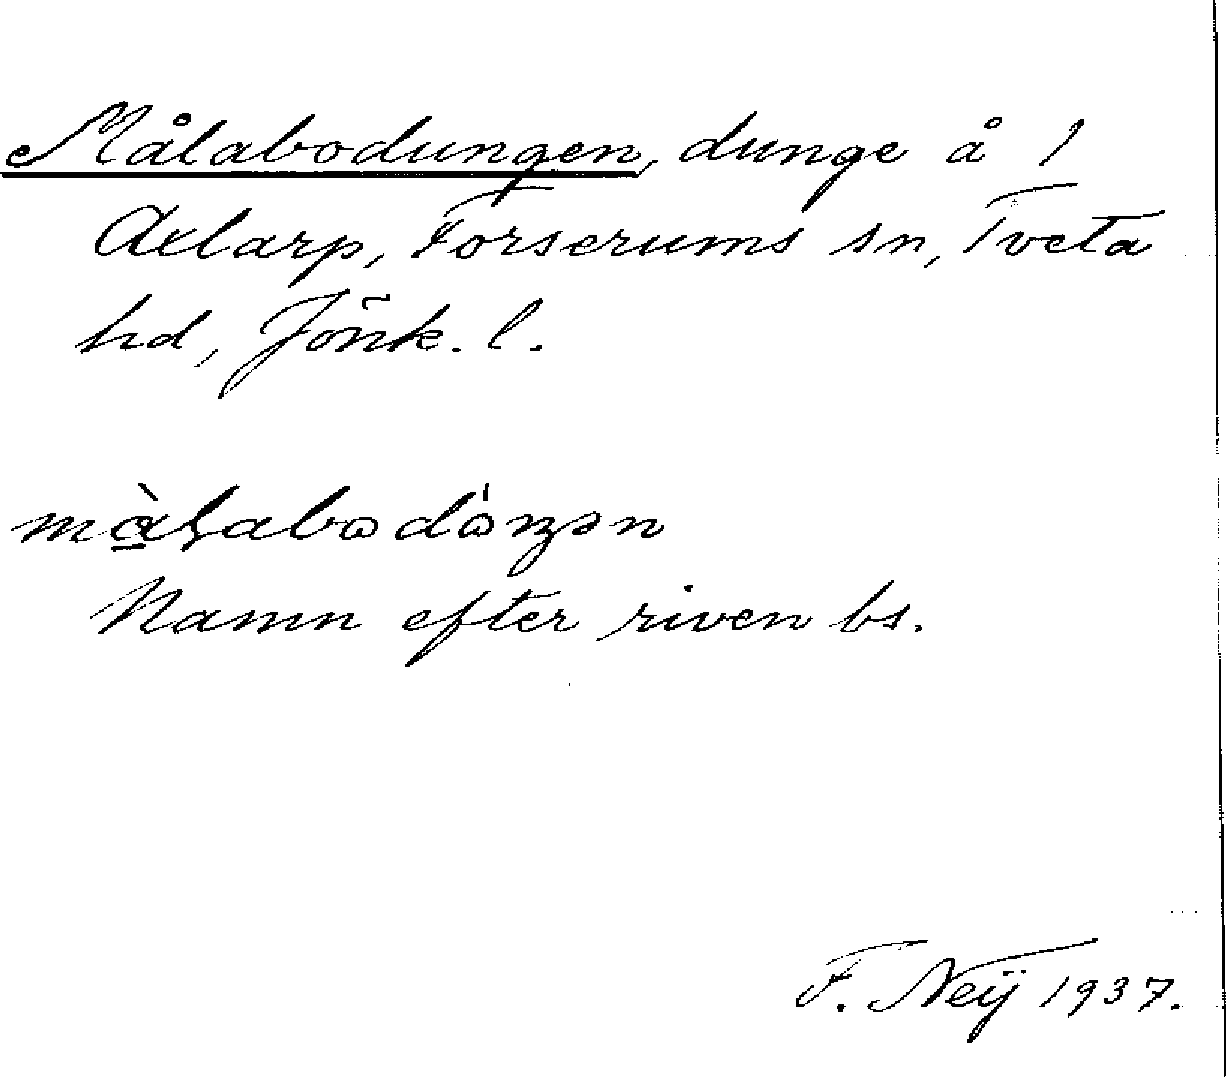 Målabodungen, dunge å 1
Axlarp, Forserums sn, Tveta
hd, Jönk. l.
Namn efter riven bs.
F. Neÿ 1937.